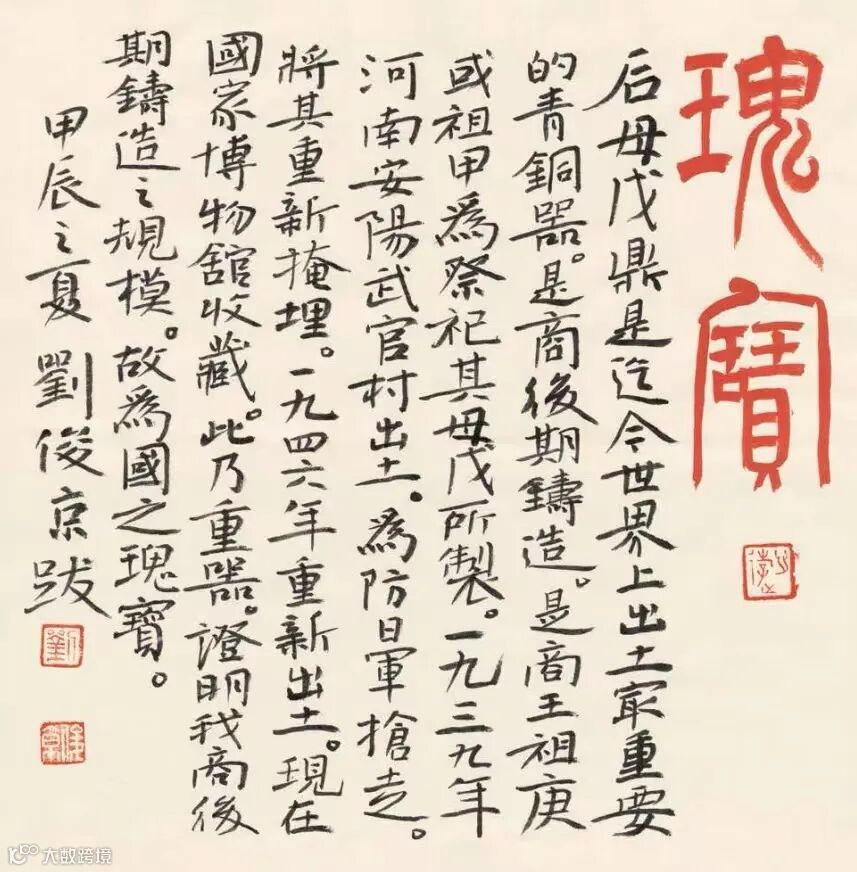 瑰寶
后母戊鼎是迄今世界上出土冣重要
的青銅器。是商後期鑄造。是商王祖庚
或祖甲爲祭祀其母戊所製。一九三九年
河南安陽武官村出土。爲防日軍搶走。
將其重新掩埋。一九四六年重新出土。現在
國家博物舘收藏。此乃重器。證明我商後
期鑄造之規模。故爲國之瑰寶。
甲辰之夏 劉俊京跋
劉
大数跨境